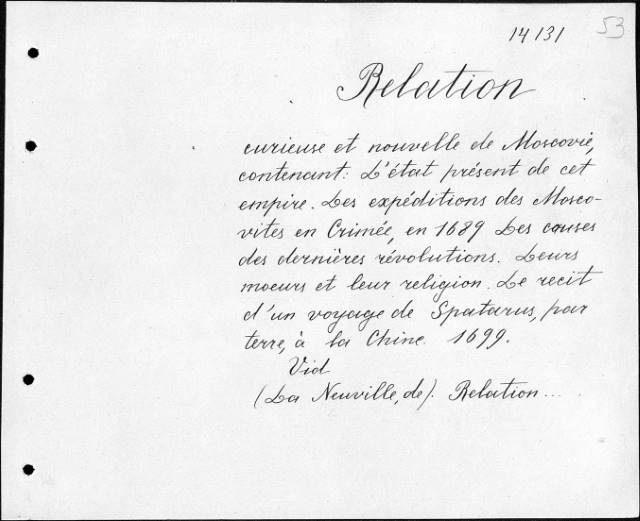 14131 53
Relation
curieuse et nouvelle de Moscovie,
contenant: L'état présent de cet
empire. Les expéditions des Mosco-
vites en Crimée, en 1689 Les causes
des dernières révolutions. Leurs
moeurs et leur religion. Le recit
d'un voyage de Spatarus, par
terre, à la Chine. 1699.
Vid
(La Neuville, de). Relation...